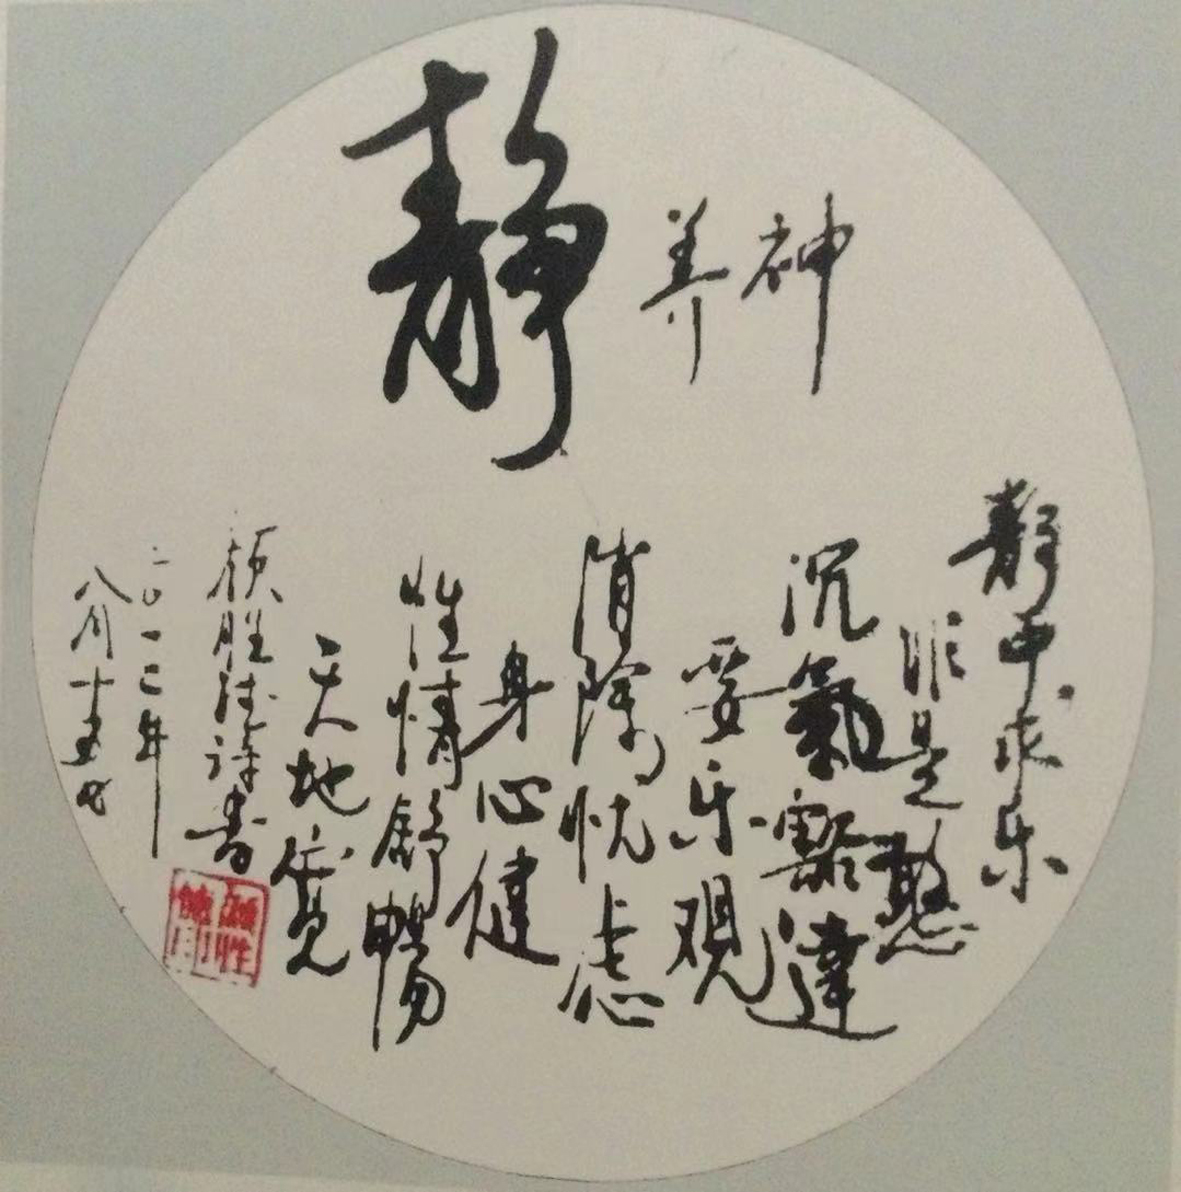 静养神
静中求乐
非是憨
沉氣豁達
要乐观
消除忧虑
身心健
性情舒暢
天地宽
顾胜诗書
二〇一二年
八月十五日